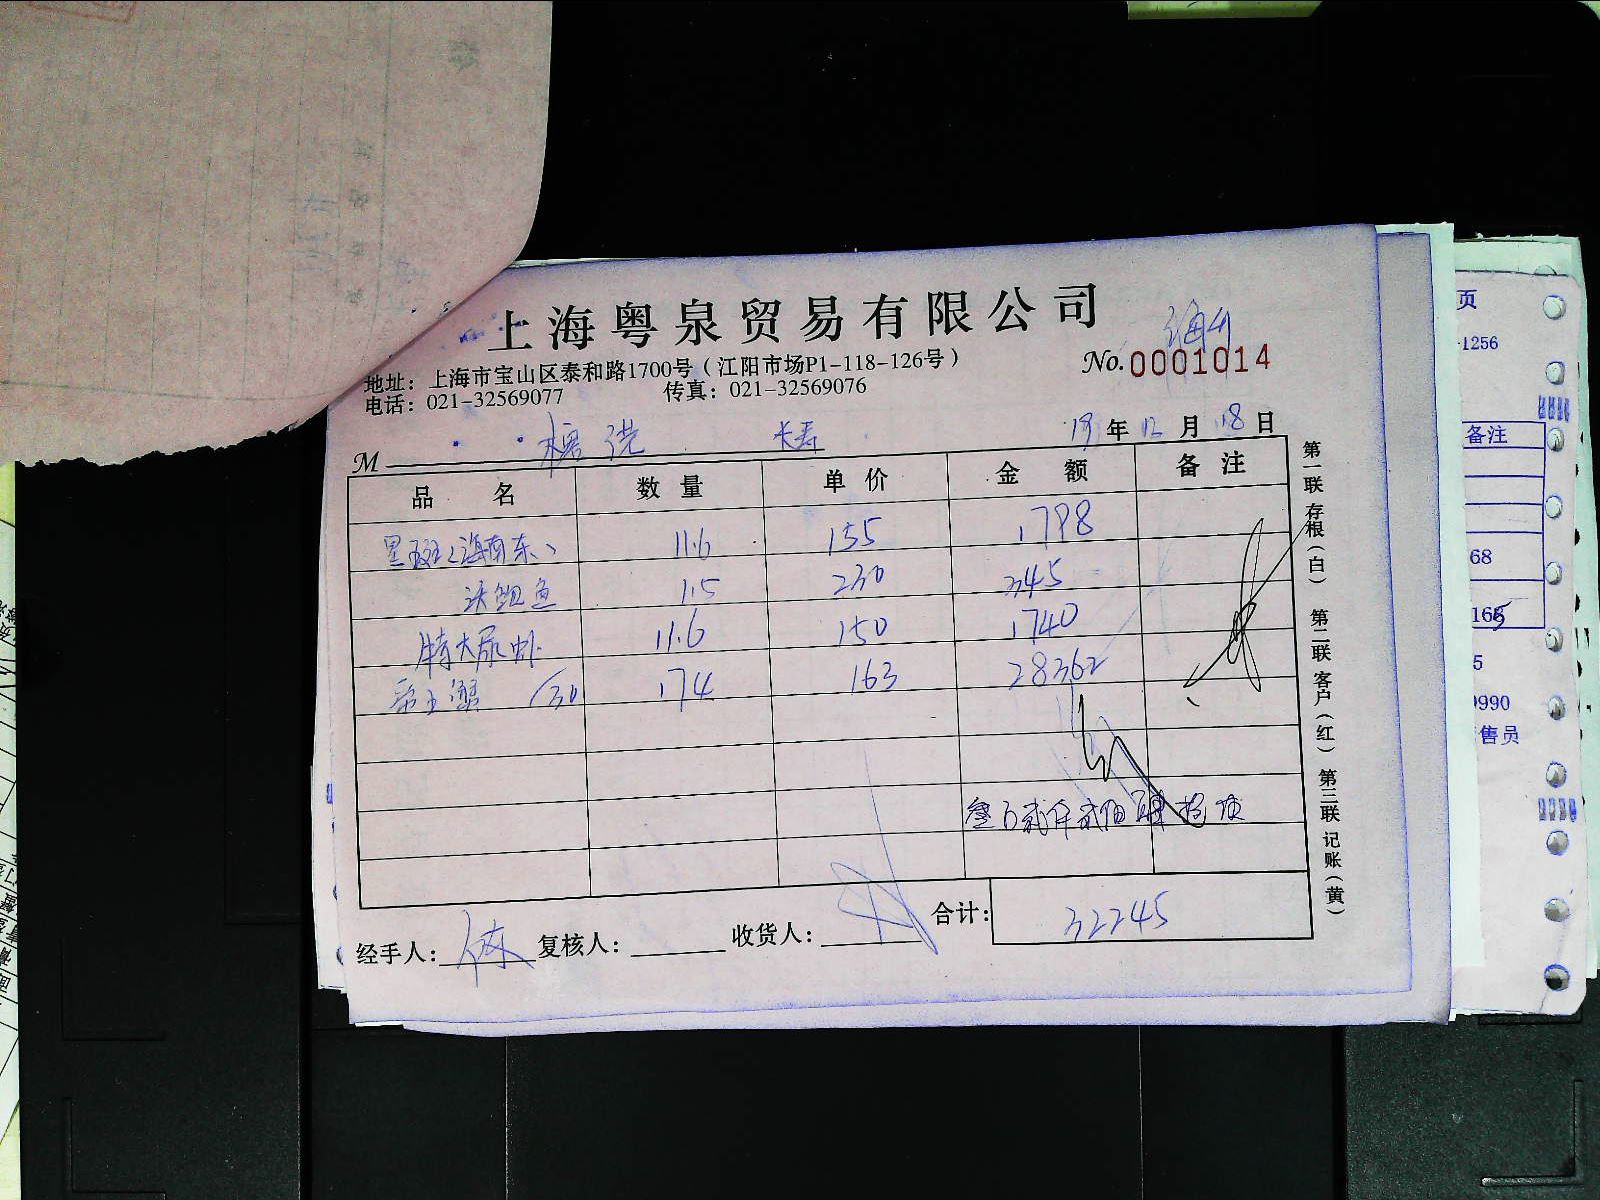 上海粤泉贸易有限公司
地址：上海市宝山区泰和路1700号（江阳市场P1-118-126号）
No.0001014
电话：021-32569077 传真：021-32569076
长寿
19年12月18日
M
品名 数量 单价 金额 备注
星斑（海南东） 11.6 155 1798
沃鲍鱼 1.5 230 345
特大尿虾 11.6 150 1740
帝王蟹 /30 174 163 28362
合计：32245
经手人： 复核人： 收货人：
第一联 存根（白） 第二联 客户（红） 第三联 记账（黄）
页
-1256
备注
68
165
5
9990
售员